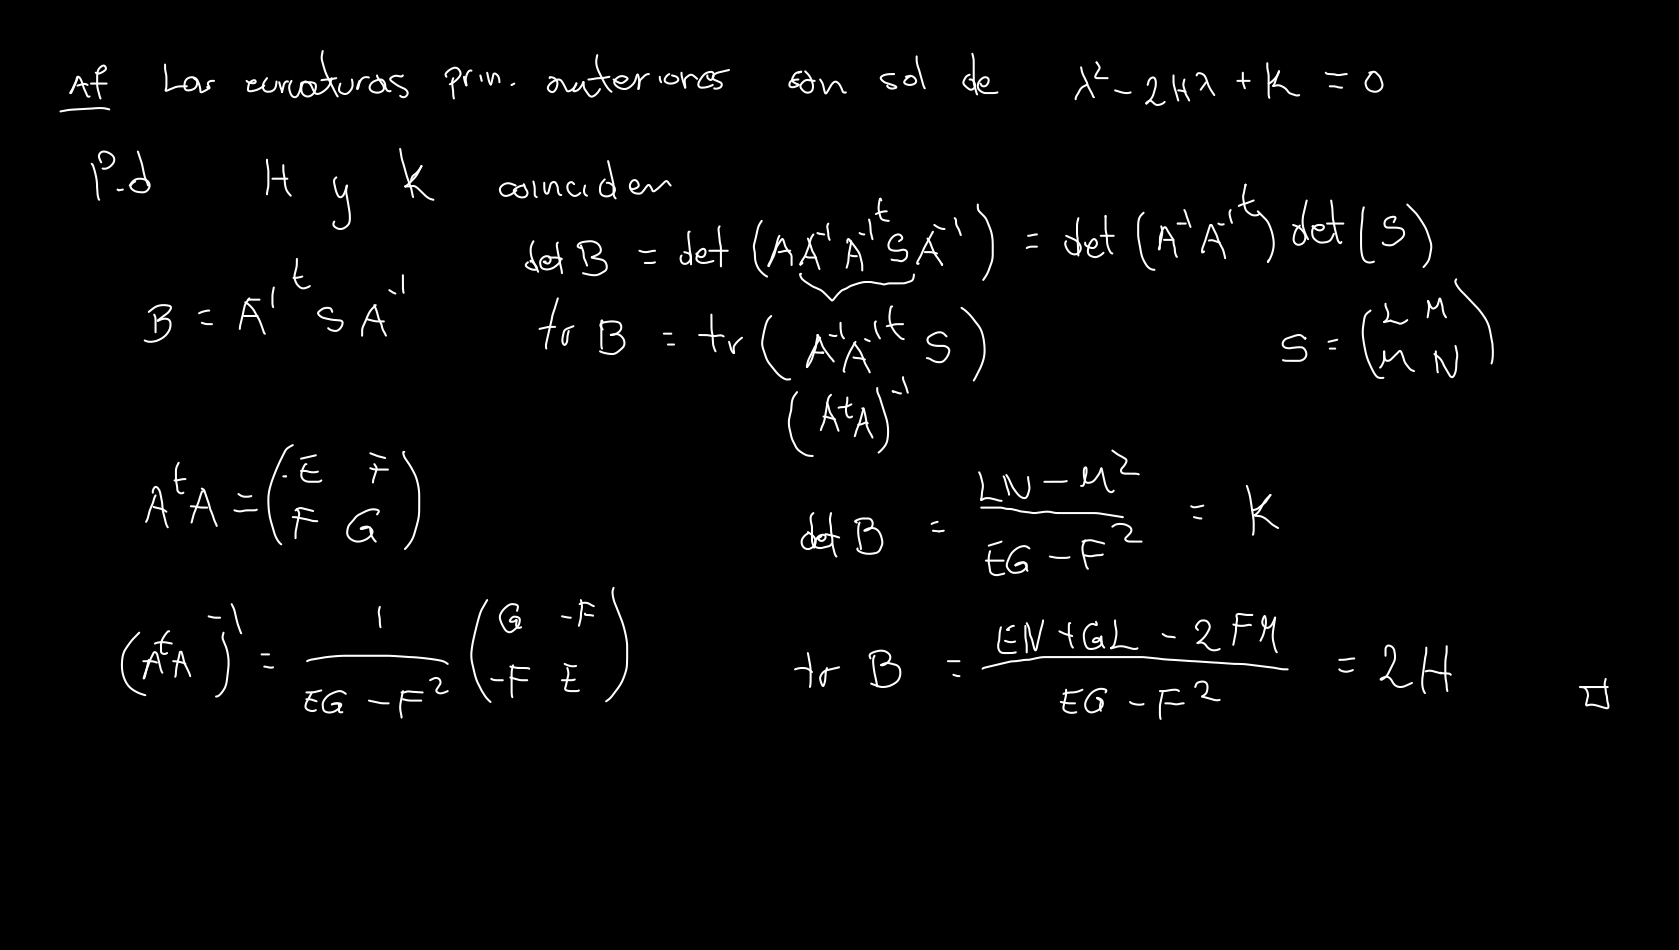 Af Las curvaturas prin. anteriores son sol de λ² - 2Hλ + K = 0
P.d H y K coinciden
det B = det (A A⁻¹ A⁻¹ᵗ S A⁻¹) = det (A⁻¹ A⁻¹ᵗ) det (S)
B = A⁻¹ᵗ S A⁻¹
tr B = tr (A⁻¹ A⁻¹ᵗ S)
S = (L M
M N)
(AᵗA)⁻¹
AᵗA = (E F
F G)
det B = (LN - M²)/(EG - F²) = K
(AᵗA)⁻¹ = 1/(EG - F²) (G -F
-F E)
tr B = (EN + GL - 2FM)/(EG - F²) = 2H □